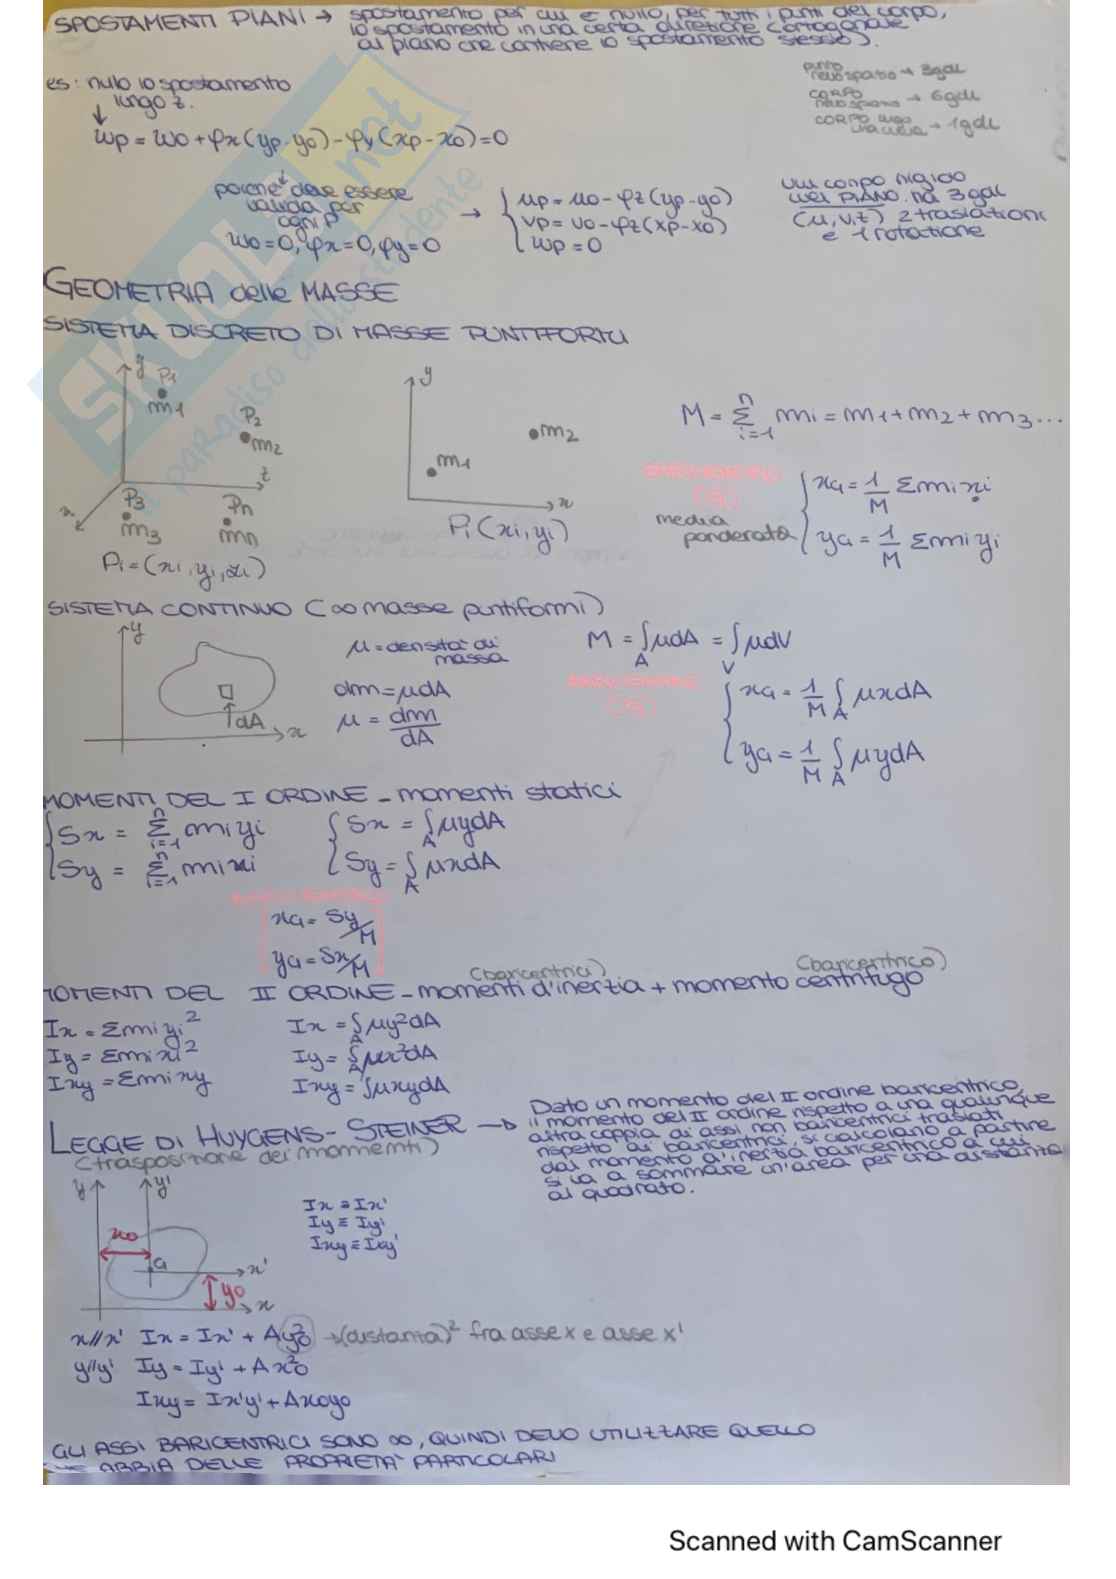 SPOSTAMENTI PIANI → spostamento per cui è nullo, per tutti i punti del corpo,
lo spostamento in una certa direzione (ortogonale
al piano che contiene lo spostamento stesso).
es: nullo lo spostamento
lungo z.
punto
nello spazio → 3gdl
CORPO
nello spazio → 6gdl
CORPO lungo
una linea → 1gdl
wp = w0 + φx (yp - y0) - φy (xp - x0) = 0
poiché deve essere
valida per
ogni P
w0 = 0, φx = 0, φy = 0
→ { up = u0 - φz (yp - y0)
vp = v0 - φz (xp - x0)
wp = 0
un corpo rigido
nel PIANO ha 3gdl
(u, v, z) 2 traslazioni
e 1 rotazione
GEOMETRIA delle MASSE
SISTEMA DISCRETO DI MASSE PUNTIFORMI
y
P1
m1
P2
m2
z
x
P3
m3
Pn
mn
Pi = (xi, yi, zi)
y
m2
m1
x
Pi (xi, yi)
M = Σ i=1 n mi = m1 + m2 + m3 ...
media
ponderata
{ xG = 1/M Σ mi xi
yG = 1/M Σ mi yi
SISTEMA CONTINUO (∞ masse puntiformi)
y
dA
x
μ = densità di
massa
dm = μdA
μ = dm/dA
M = ∫A μdA = ∫V μdV
{ xG = 1/M ∫A μxdA
yG = 1/M ∫A μydA
MOMENTI DEL I ORDINE - momenti statici
{ Sx = Σ i=1 n mi yi
Sy = Σ i=1 n mi xi
{ Sx = ∫A μydA
Sy = ∫A μxdA
xG = Sy/M
yG = Sx/M
(baricentrici)
(baricentrico)
MOMENTI DEL II ORDINE - momenti d'inerzia + momento centrifugo
Ix = Σmi yi²
Iy = Σmi xi²
Ixy = Σmi xy
Ix = ∫A μy²dA
Iy = ∫A μx²dA
Ixy = ∫μxydA
LEGGE DI HUYGENS-STEINER →
(trasposizione dei momenti)
Dato un momento del II ordine baricentrico,
il momento del II ordine rispetto a una qualunque
altra coppia di assi non baricentrici traslati
rispetto ai baricentrici, si calcolano a partire
dal momento d'inerzia baricentrico a cui
si va a sommare un'area per una distanza
al quadrato.
y
y'
x0
G
x'
y0
x
Ix ≡ Ix'
Iy ≡ Iy'
Ixy ≡ Ixy'
x//x' Ix = Ix' + Ay0² → (distanza)² fra asse x e asse x'
y//y' Iy = Iy' + Ax0²
Ixy = Ix'y' + Ax0y0
GLI ASSI BARICENTRICI SONO ∞, QUINDI DEVO UTILIZZARE QUELLO
CHE ABBIA DELLE PROPRIETÀ PARTICOLARI
SKUOLA.net
il paradiso dello studente
Scanned with CamScanner